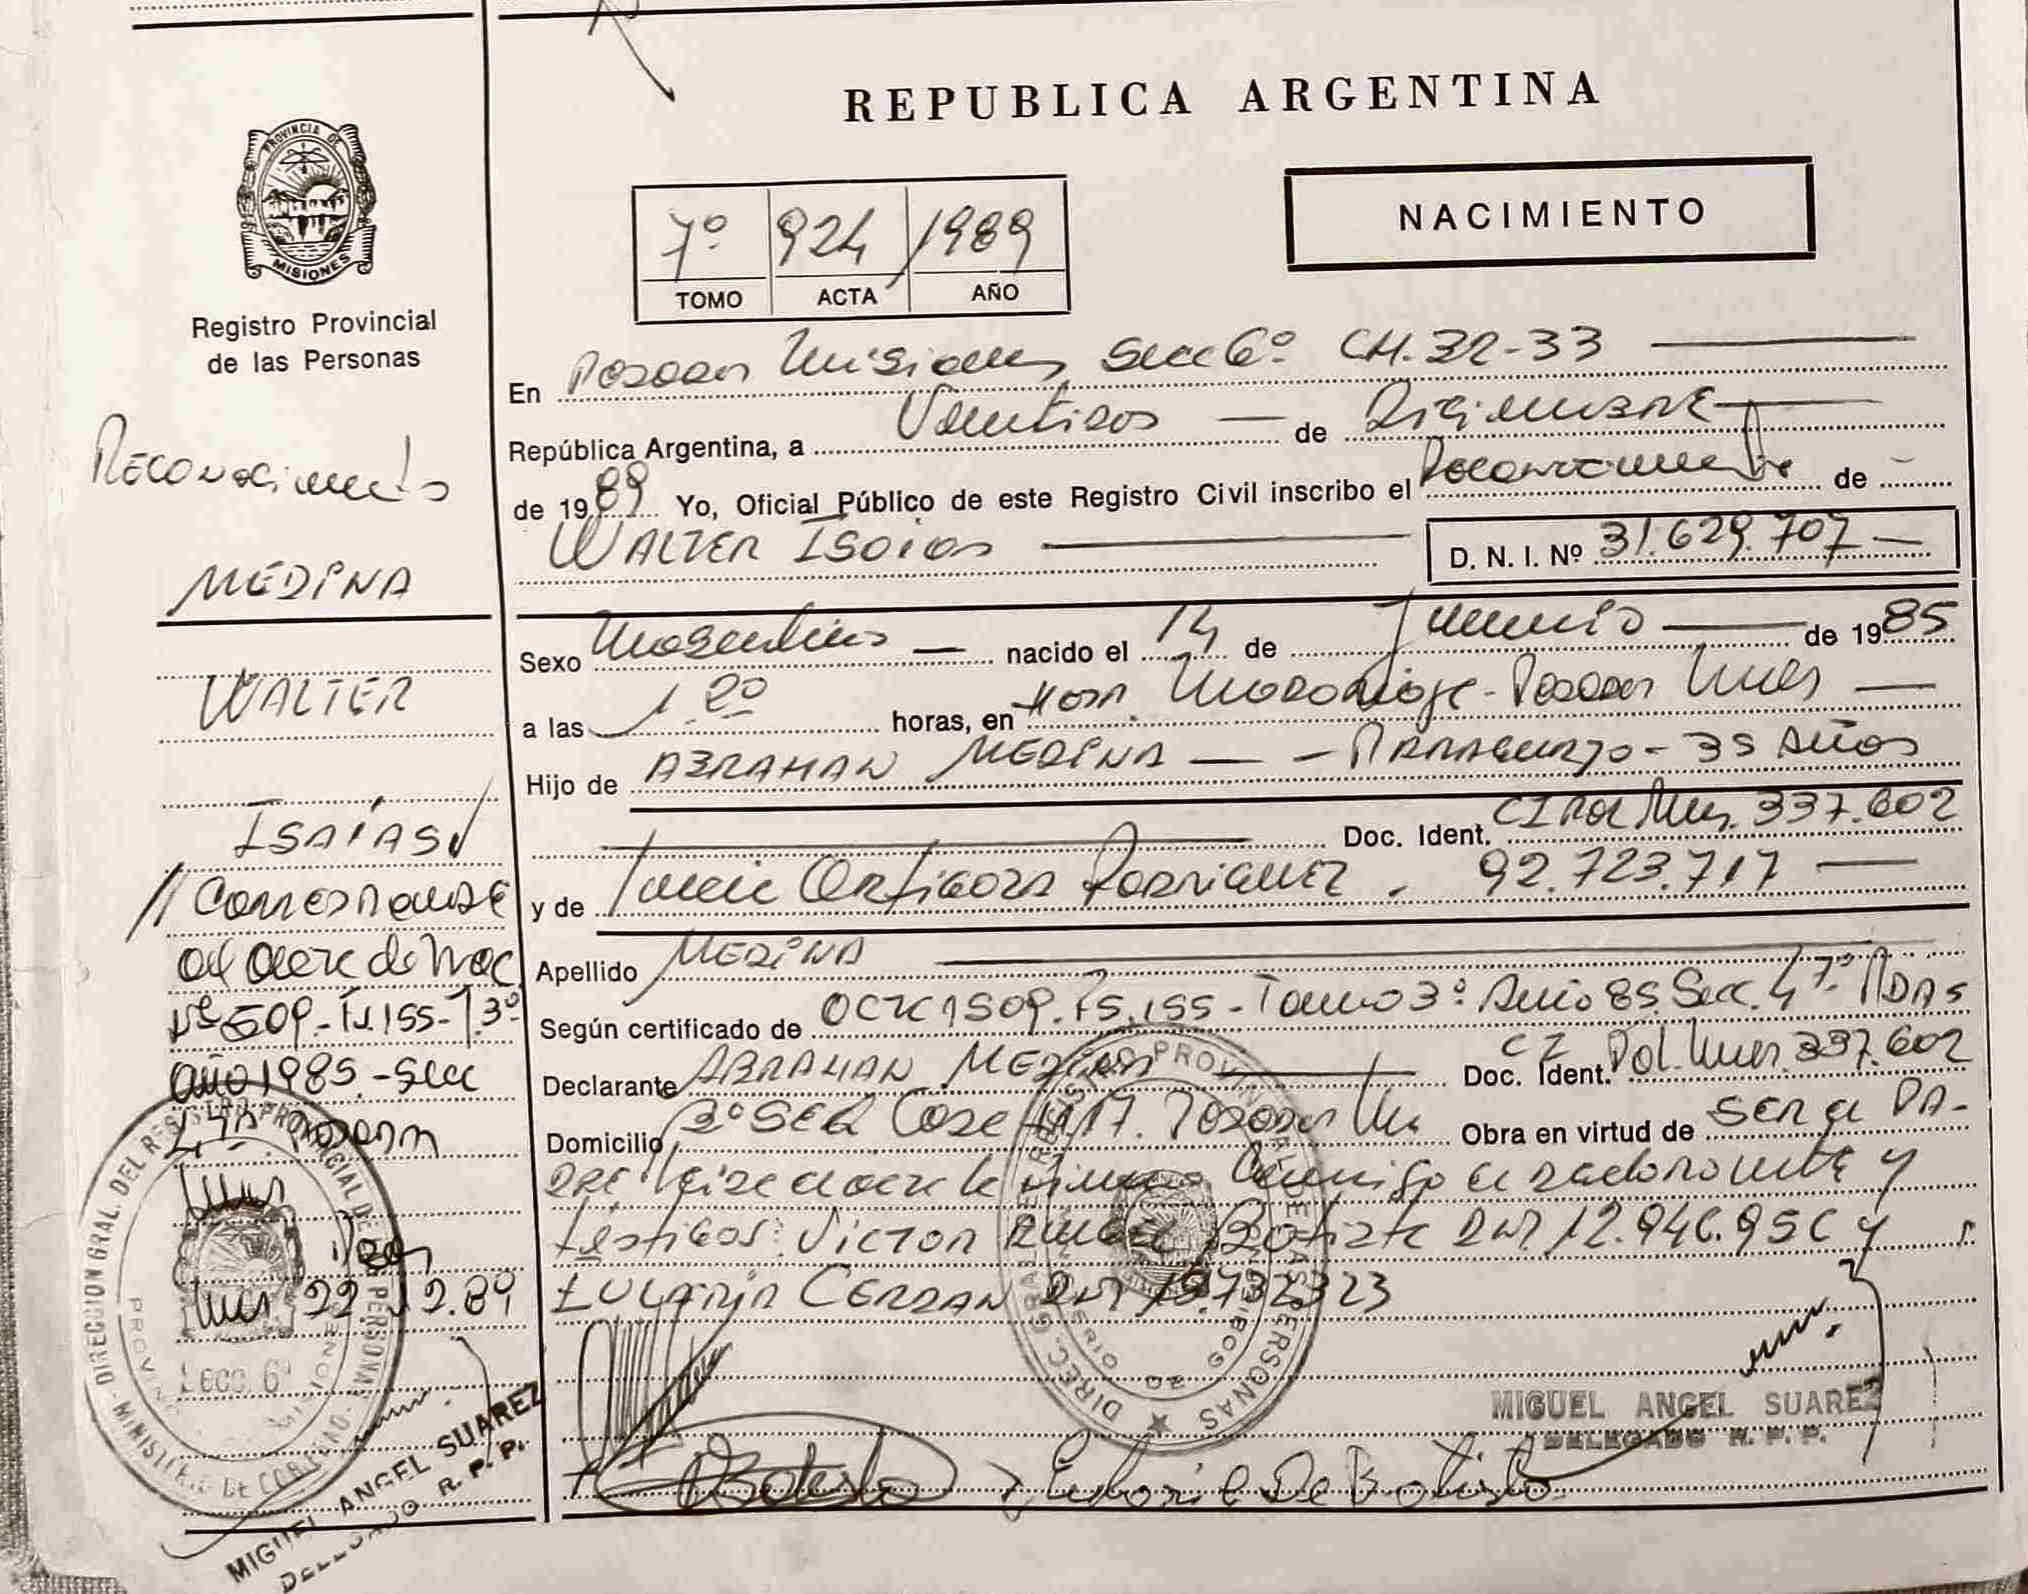 REPUBLICA ARGENTINA
PROVINCIA DE
MISIONES
Registro Provincial
de las Personas
7º 924 1989
TOMO ACTA AÑO
NACIMIENTO
En Posadas Misiones Secc 6º CH. 32-33
República Argentina, a Veintidos de Diciembre
de 1989 Yo, Oficial Público de este Registro Civil inscribo el Reconocimiento de
WALTER ISAIAS
D. N. I. Nº 31.629.707
Sexo Masculino nacido el 14 de de 1985
a las 1.20 horas, en Hosp. Madariaga - Posadas Mnes
Hijo de ABRAHAN MEDINA - PARAGUAYO - 35 AÑOS
Doc. Ident. CI Pol Mnes. 337.602
y de Ortigoza Rodriguez . 92.723.717
Apellido MEDINA
Según certificado de Acta 1509. Fs. 155 - Tomo 3º Año 85. Secc. 4ta. PDAS
Declarante ABRAHAN MEDINA Doc. Ident. CI Pol. Mnes. 337.602
Domicilio Posadas Mnes Obra en virtud de SER el PA-
DRE y
testigos: VICTOR DNI 12.946.956 y
CERDAN DNI
MIGUEL ANGEL SUAREZ
DELEGADO R. P. P.
Reconocimiento
MEDINA
WALTER
ISAÍAS
// Corresponde
al acta de Nac.
Nº 1509.- Fs. 155 - T. 3º
año 1985. - Secc
4ta. Posadas
Mnes
Mnes 22 12.89
DIRECCION GRAL. DEL REGISTRO PROVINCIAL DE LAS PERSONAS
SECC. 6ª
MIGUEL ANGEL SUAREZ
DELEGADO R. P. P.